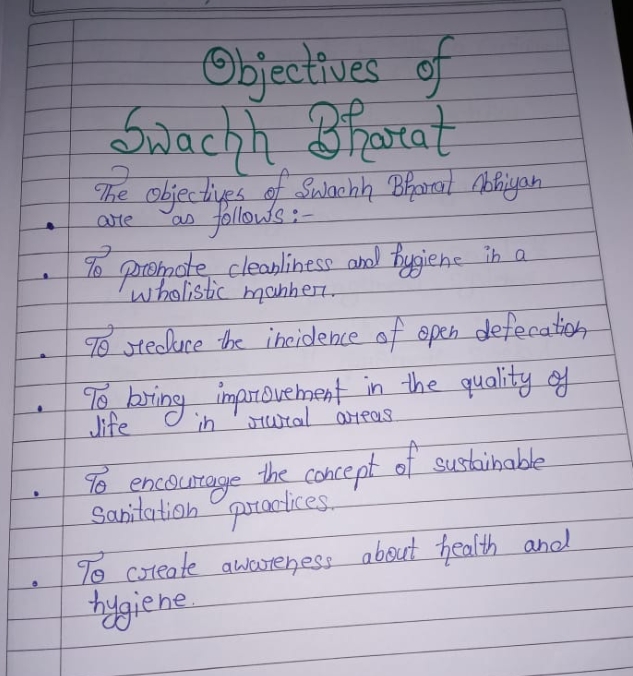 Objectives of
Swachh Bharat
The objectives of Swachh Bharat Abhiyan
• are as follows:-
• To promote cleanliness and hygiene in a
wholistic manner.
• To reduce the incidence of open defecation
• To bring improvement in the quality of
life in rural areas
• To encourage the concept of sustainable
sanitation practices.
• To create awareness about health and
hygiene.